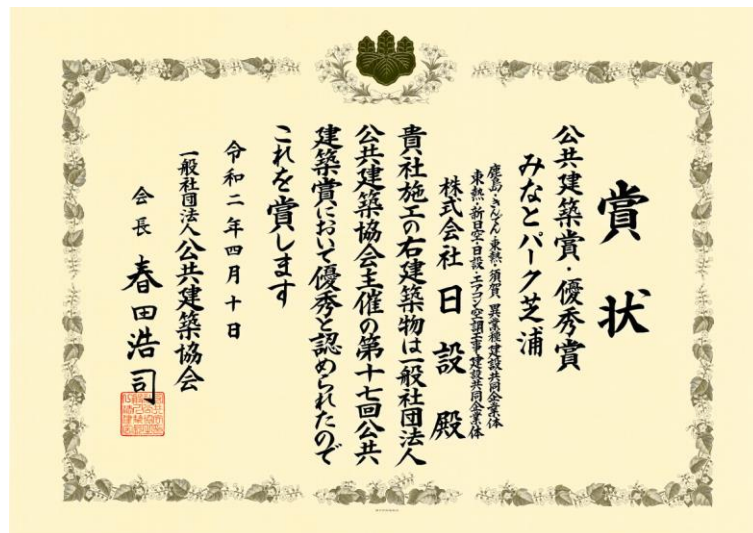 賞状
公共建築賞・優秀賞
みなとパーク芝浦
鹿島・きんでん・東熱・須賀 異業種建設共同企業体
東熱・新日空・日設・エアコン空調工事建設共同企業体
株式会社 日設 殿
貴社施工の右建築物は一般社団法人
公共建築協会主催の第十七回公共
建築賞において優秀と認められたので
これを賞します
令和二年四月十日
一般社団法人公共建築協会
会長 春田浩司